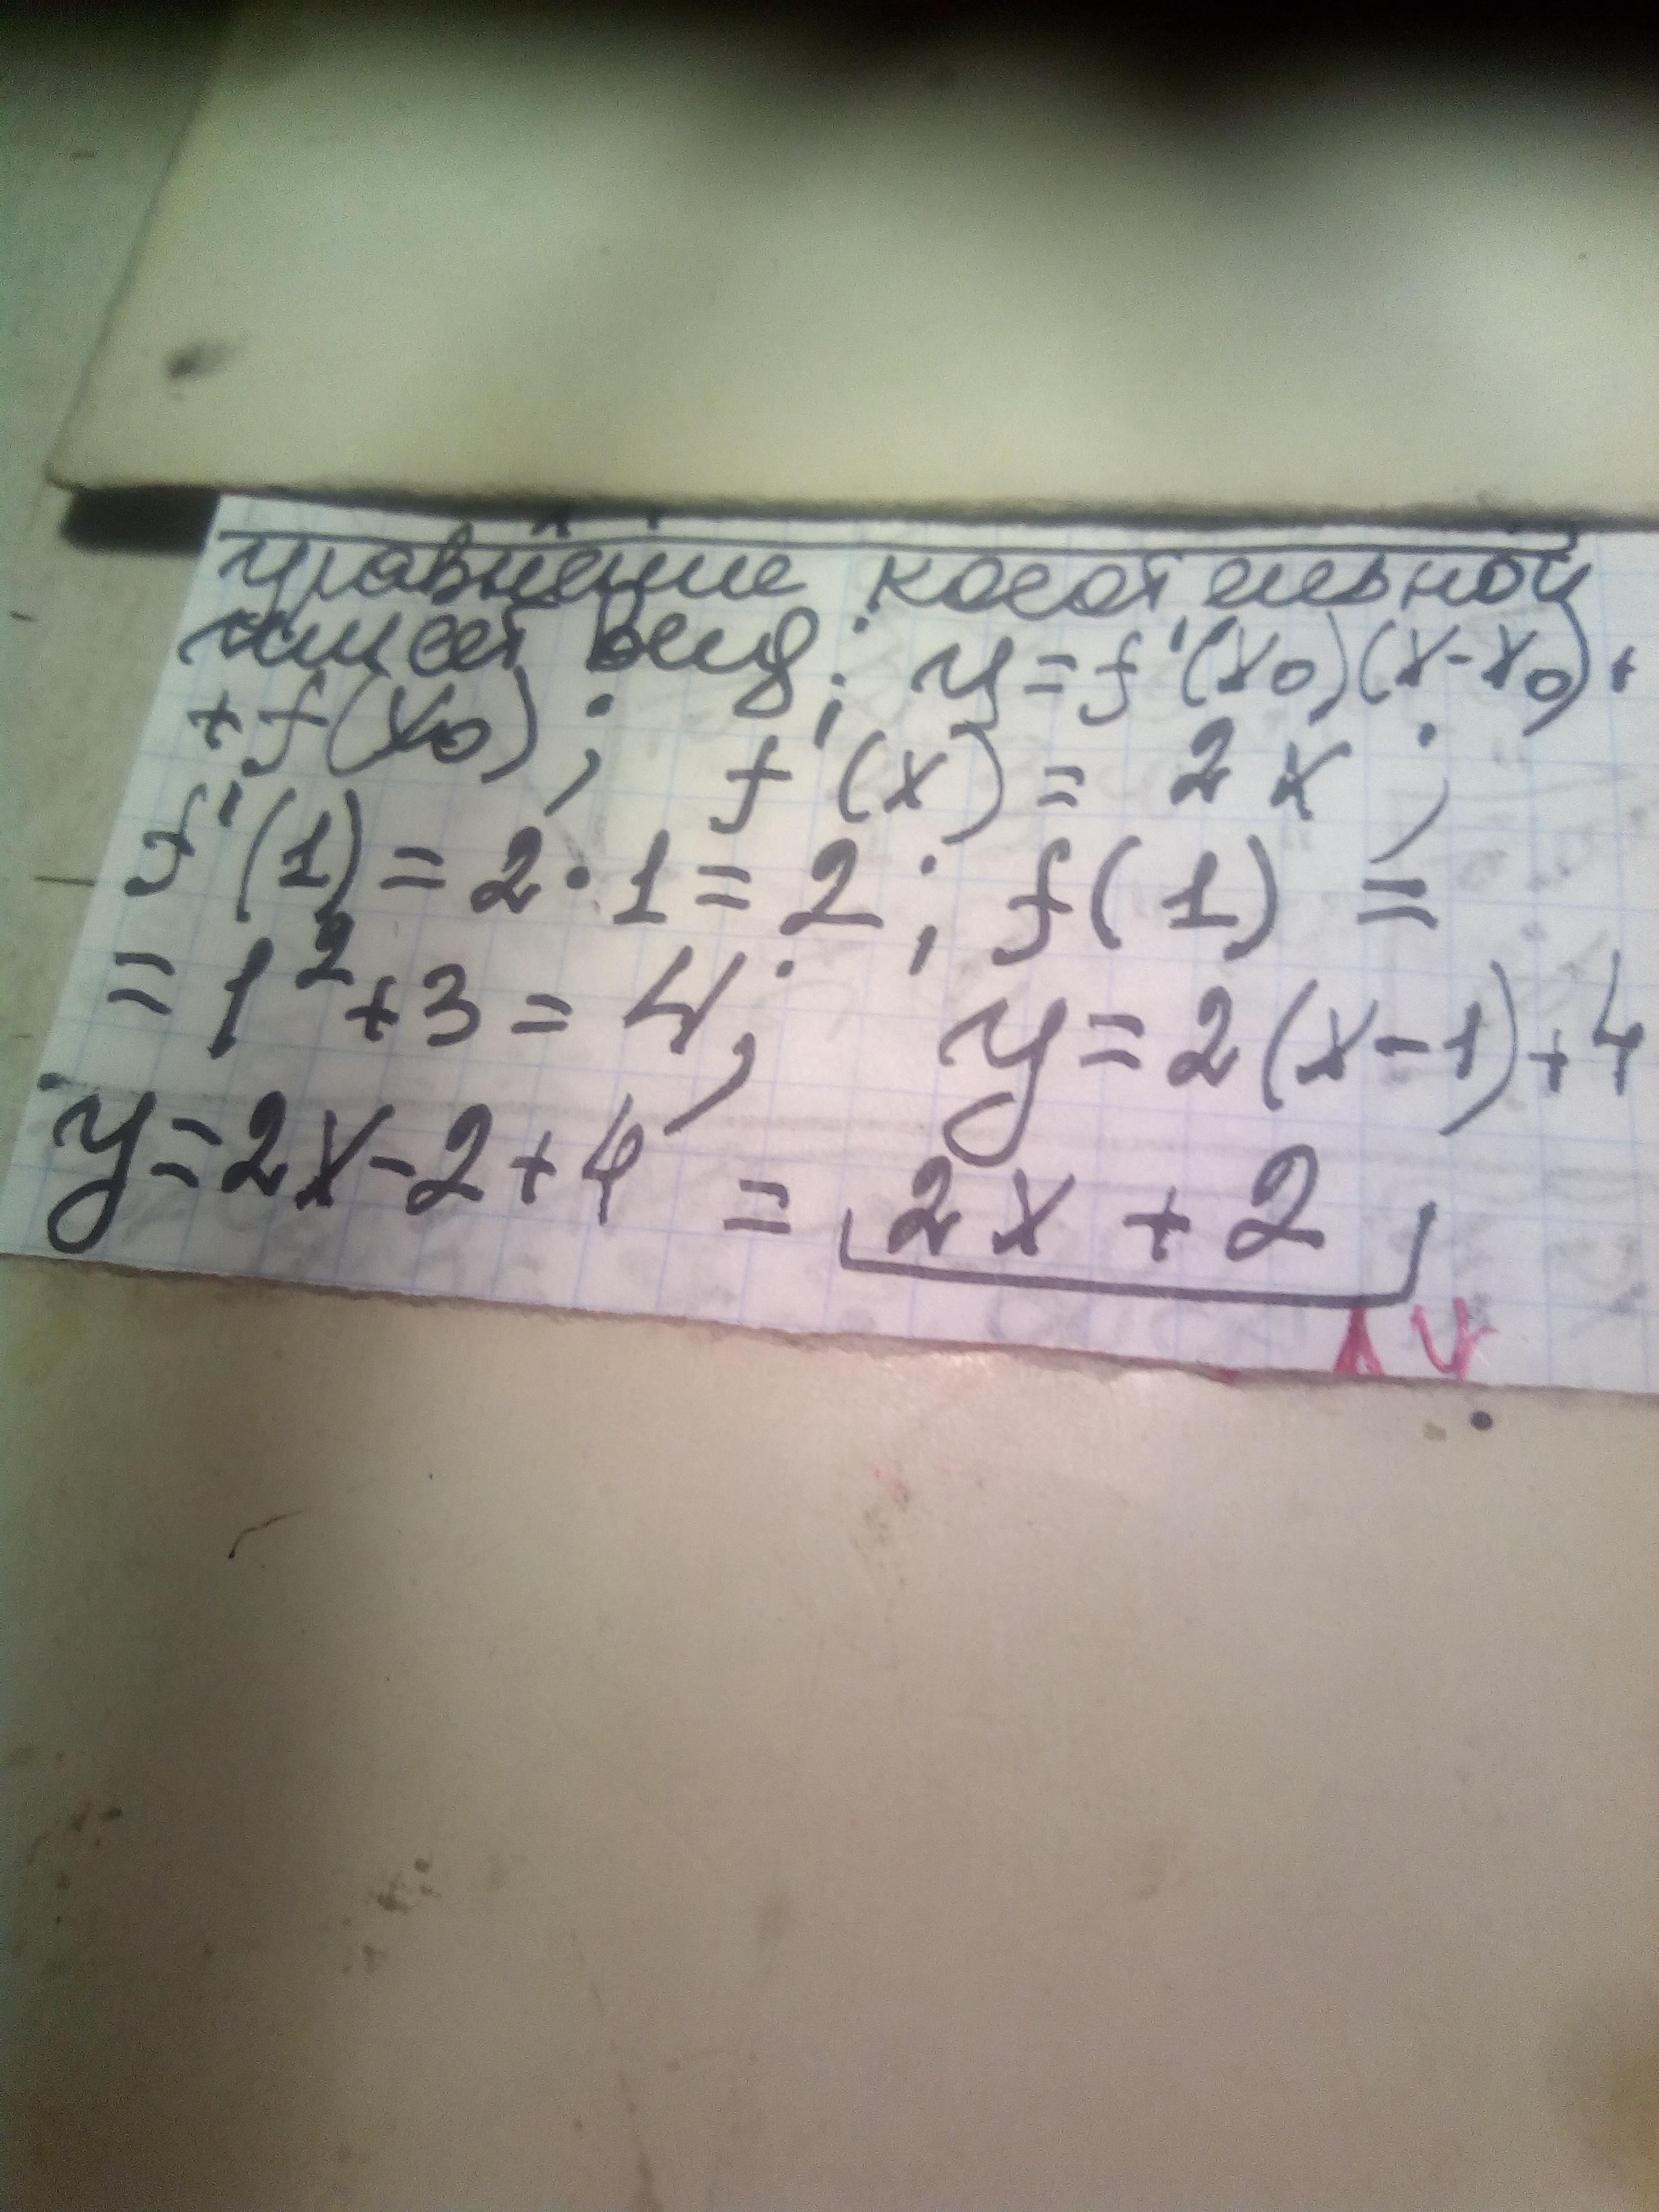 уравнение касательной
имеет вид: y=f'(x₀)(x-x₀)+
+f(x₀); f'(x) = 2x;
f'(1)=2·1=2; f(1) =
=1²+3=4; y=2(x-1)+4
y=2x-2+4 = 2x+2
y